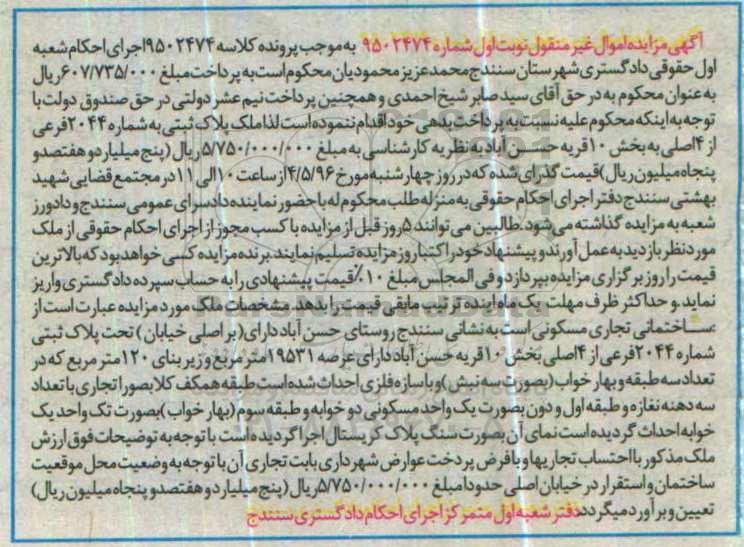 آگهی مزایده اموال غیر منقول نوبت اول شماره ۹۵۰۲۴۷۴ به موجب پرونده کلاسه ۹۵۰۲۴۷۴ اجرای احکام شعبه
اول حقوقی دادگستری شهرستان سنندج محمد عزیز محمودیان محکوم است به پرداخت مبلغ ۶۰۷/۷۳۵/۰۰۰ ریال
به عنوان محکوم به در حق آقای سید صابر شیخ احمدی و همچنین پرداخت نیم عشر دولتی در حق صندوق دولت با
توجه به اینکه محکوم علیه نسبت به پرداخت بدهی خود اقدام ننموده است لذا ملک پلاک ثبتی به شماره ۲۰۴۴ فرعی
از ۴ اصلی به بخش ۱۰ قریه حسن آباد به نظریه کارشناسی به مبلغ ۵/۷۵۰/۰۰۰/۰۰۰ ریال (پنج میلیارد و هفتصد و
پنجاه میلیون ریال) قیمت گذرای شده که در روز چهار شنبه مورخ ۴/۵/۹۶ از ساعت ۱۰ الی ۱۱ در مجتمع قضایی شهید
بهشتی سنندج دفتر اجرای احکام حقوقی به منزله طلب محکوم له با حضور نماینده دادسرای عمومی سنندج و دادورز
شعبه به مزایده گذاشته می شود. طالبین می توانند ۵ روز قبل از مزایده با کسب مجوز از اجرای احکام حقوقی از ملک
مورد نظر بازدید به عمل آورند و پیشنهاد خود را کتبا روز مزایده تسلیم نمایند. برنده مزایده کسی خواهد بود که بالاترین
قیمت را روز برگزاری مزایده بپردازد و فی المجلس مبلغ ۱۰٪ قیمت پیشنهادی را به حساب سپرده دادگستری واریز
نماید. و حداکثر ظرف مهلت یک ماه اینده ترتیب مابقی قیمت را بدهد. مشخصات ملک مورد مزایده عبارت است از
ساختمانی تجاری مسکونی است به نشانی سنندج روستای حسن آباد دارای (بر اصلی خیابان) تحت پلاک ثبتی
شماره ۲۰۴۴ فرعی از ۴ اصلی بخش ۱۰ قریه حسن آباد دارای عرصه ۱۹۵۳۱ متر مربع و زیر بنای ۱۲۰ متر مربع که در
تعداد سه طبقه و بهار خواب (بصورت سه نبش) و با سازه فلزی احداث شده است طبقه همکف کلا بصورا تجاری با تعداد
سه دهنه نغازه و طبقه اول و دون بصورت یک واحد مسکونی دو خوابه و طبقه سوم (بهار خواب) بصورت تک واحد یک
خوابه احداث گردیده است نمای آن بصورت سنگ پلاک کریستال اجرا گردیده است با توجه به توضیحات فوق ارزش
ملک مذکور با احتساب تجاریها و با فرض پردخت عوارض شهرداری بابت تجاری آن با توجه به وضعیت محل موقعیت
ساختمان و استقرار در خیابان اصلی حدودا مبلغ ۵/۷۵۰/۰۰۰/۰۰۰ ریال (پنج میلیارد و هفتصد و پنجاه میلیون ریال)
تعیین و برآورد میگردد. دفتر شعبه اول متمرکز اجرای احکام دادگستری سنندج